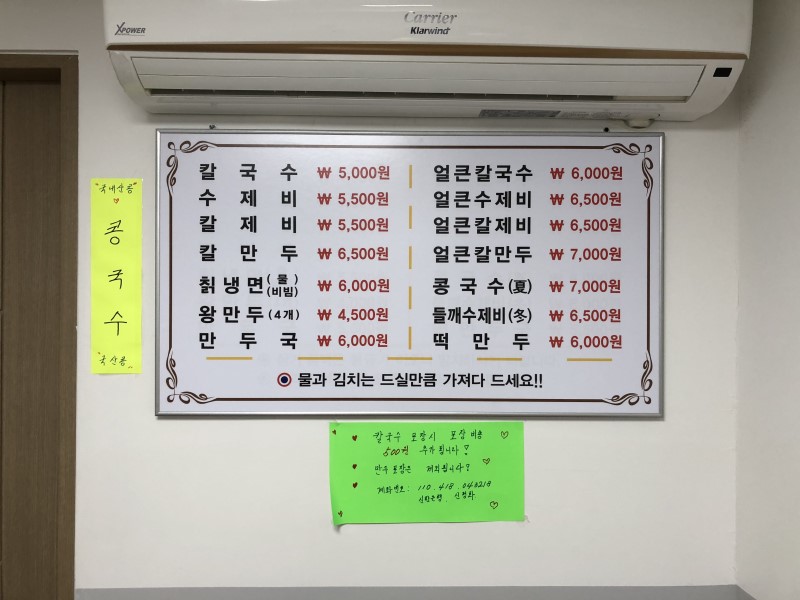 XPOWER
Carrier
Klarwind+
칼국수 ₩ 5,000원
수제비 ₩ 5,500원
칼제비 ₩ 5,500원
칼만두 ₩ 6,500원
칡냉면(물)(비빔) ₩ 6,000원
왕만두(4개) ₩ 4,500원
만두국 ₩ 6,000원
얼큰칼국수 ₩ 6,000원
얼큰수제비 ₩ 6,500원
얼큰칼제비 ₩ 6,500원
얼큰칼만두 ₩ 7,000원
콩국수(夏) ₩ 7,000원
들깨수제비(冬) ₩ 6,500원
떡만두 ₩ 6,000원
물과 김치는 드실만큼 가져다 드세요!!
"국내산콩"
콩
국
수
"국산콩"
칼국수 포장시 포장비용
500원 추가됩니다
만두 포장은 제외됩니다?
계좌번호: 110.418.043218
신한은행.